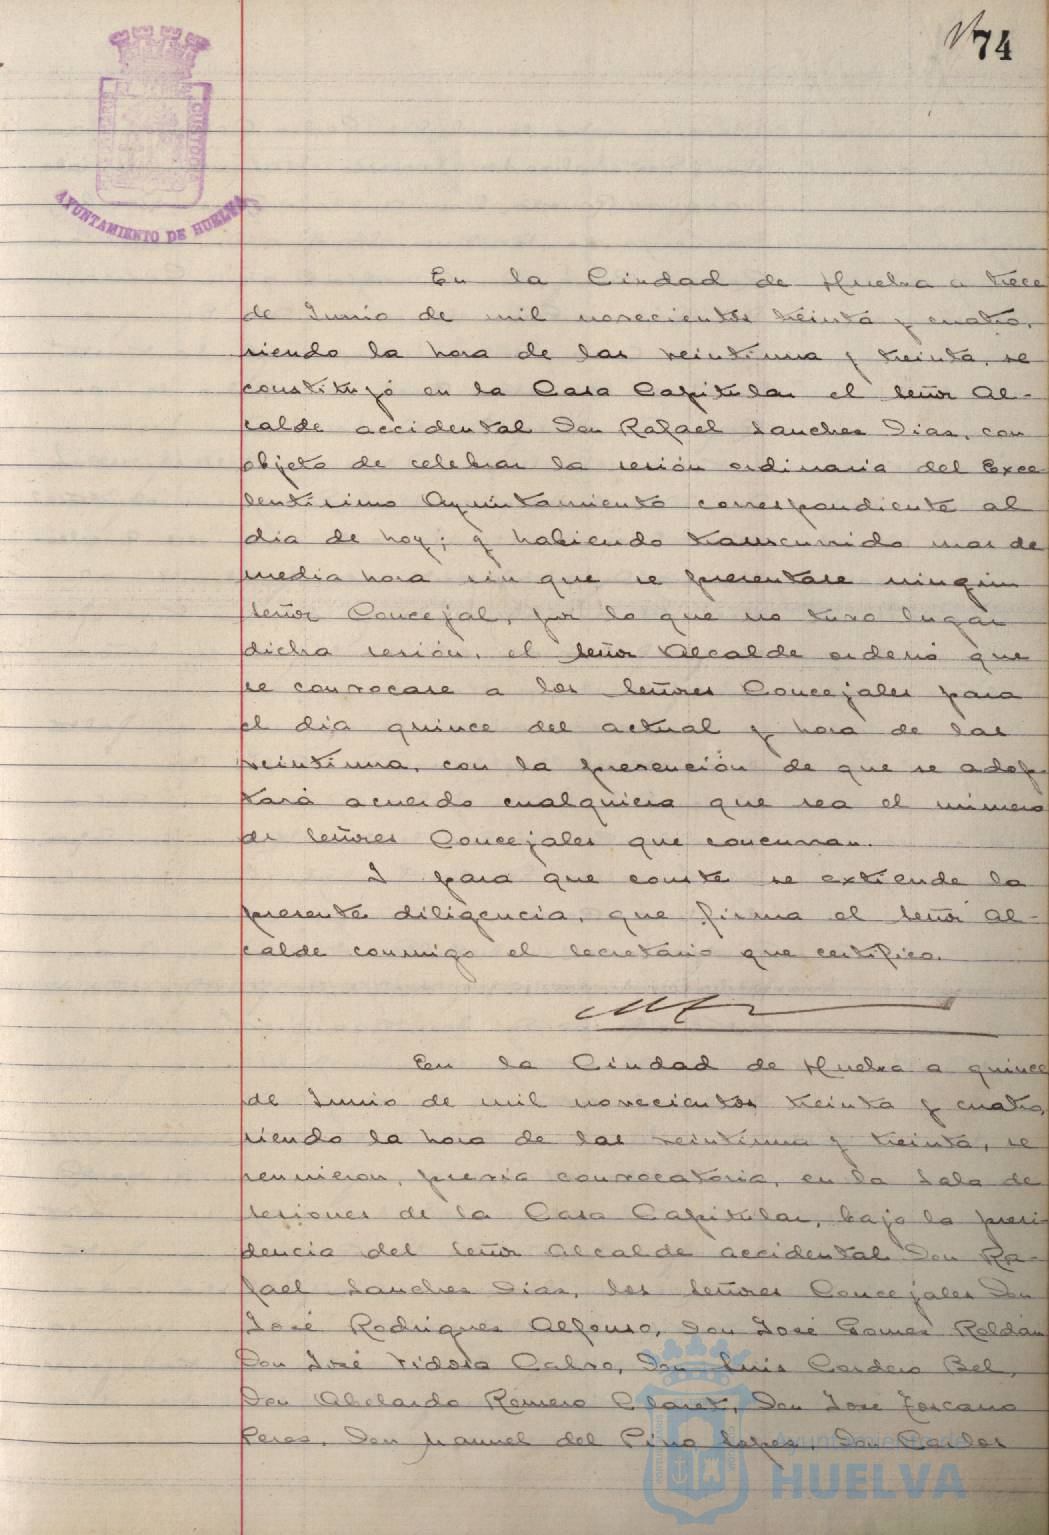 74
AYUNTAMIENTO DE HUELVA
En la Ciudad de Huelva a trece
de Junio de mil novecientos treinta y cuatro,
siendo la hora de las veintiuna y treinta, se
constituyó en la Casa Capitular el Señor Al-
calde accidental Don Rafael Sanchez Diaz, con
objeto de celebrar la sesión ordinaria del Exce
lentisimo Ayuntamiento correspondiente al
dia de hoy; y habiendo transcurrido mas de
media hora sin que se presentase ningún
Señor Concejal, por lo que no tuvo lugar
dicha sesión, el Señor Alcalde ordenó que
se convocase a los Señores Concejales para
el dia quince del actual y hora de las
veintiuna, con la prevención de que se adop
tará acuerdo cualquiera que sea el número
de Señores Concejales que concurran.
Y para que conste se extiende la
presente diligencia, que firma el Señor Al-
calde conmigo el Secretario que certifico.
En la Ciudad de Huelva a quince
de Junio de mil novecientos treinta y cuatro,
siendo la hora de las veintiuna y treinta, se
reunieron, previa convocatoria, en la Sala de
sesiones de la Casa Capitular, bajo la presi
dencia del Señor Alcalde accidental Don Ra-
fael Sanchez Diaz, los Señores Concejales Don
José Rodriguez Alfonso, Don José Gomez Roldán
Don José Vidosa Calvo, Don Luis Cordero Bel,
Don Abelardo Romero Claret, Don José Toscano
Perez, Don Manuel del Pino Lopez, Don Carlos
Ayuntamiento de
HUELVA